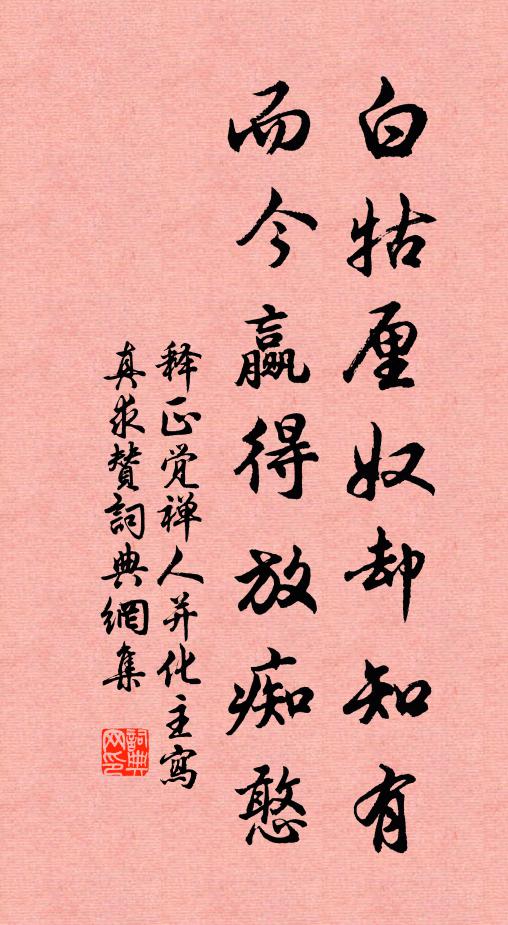 白牯厘奴却知有
而今赢得放痴憨
释正觉禅人并化主寫
真求赞詞典網集
詞典网印